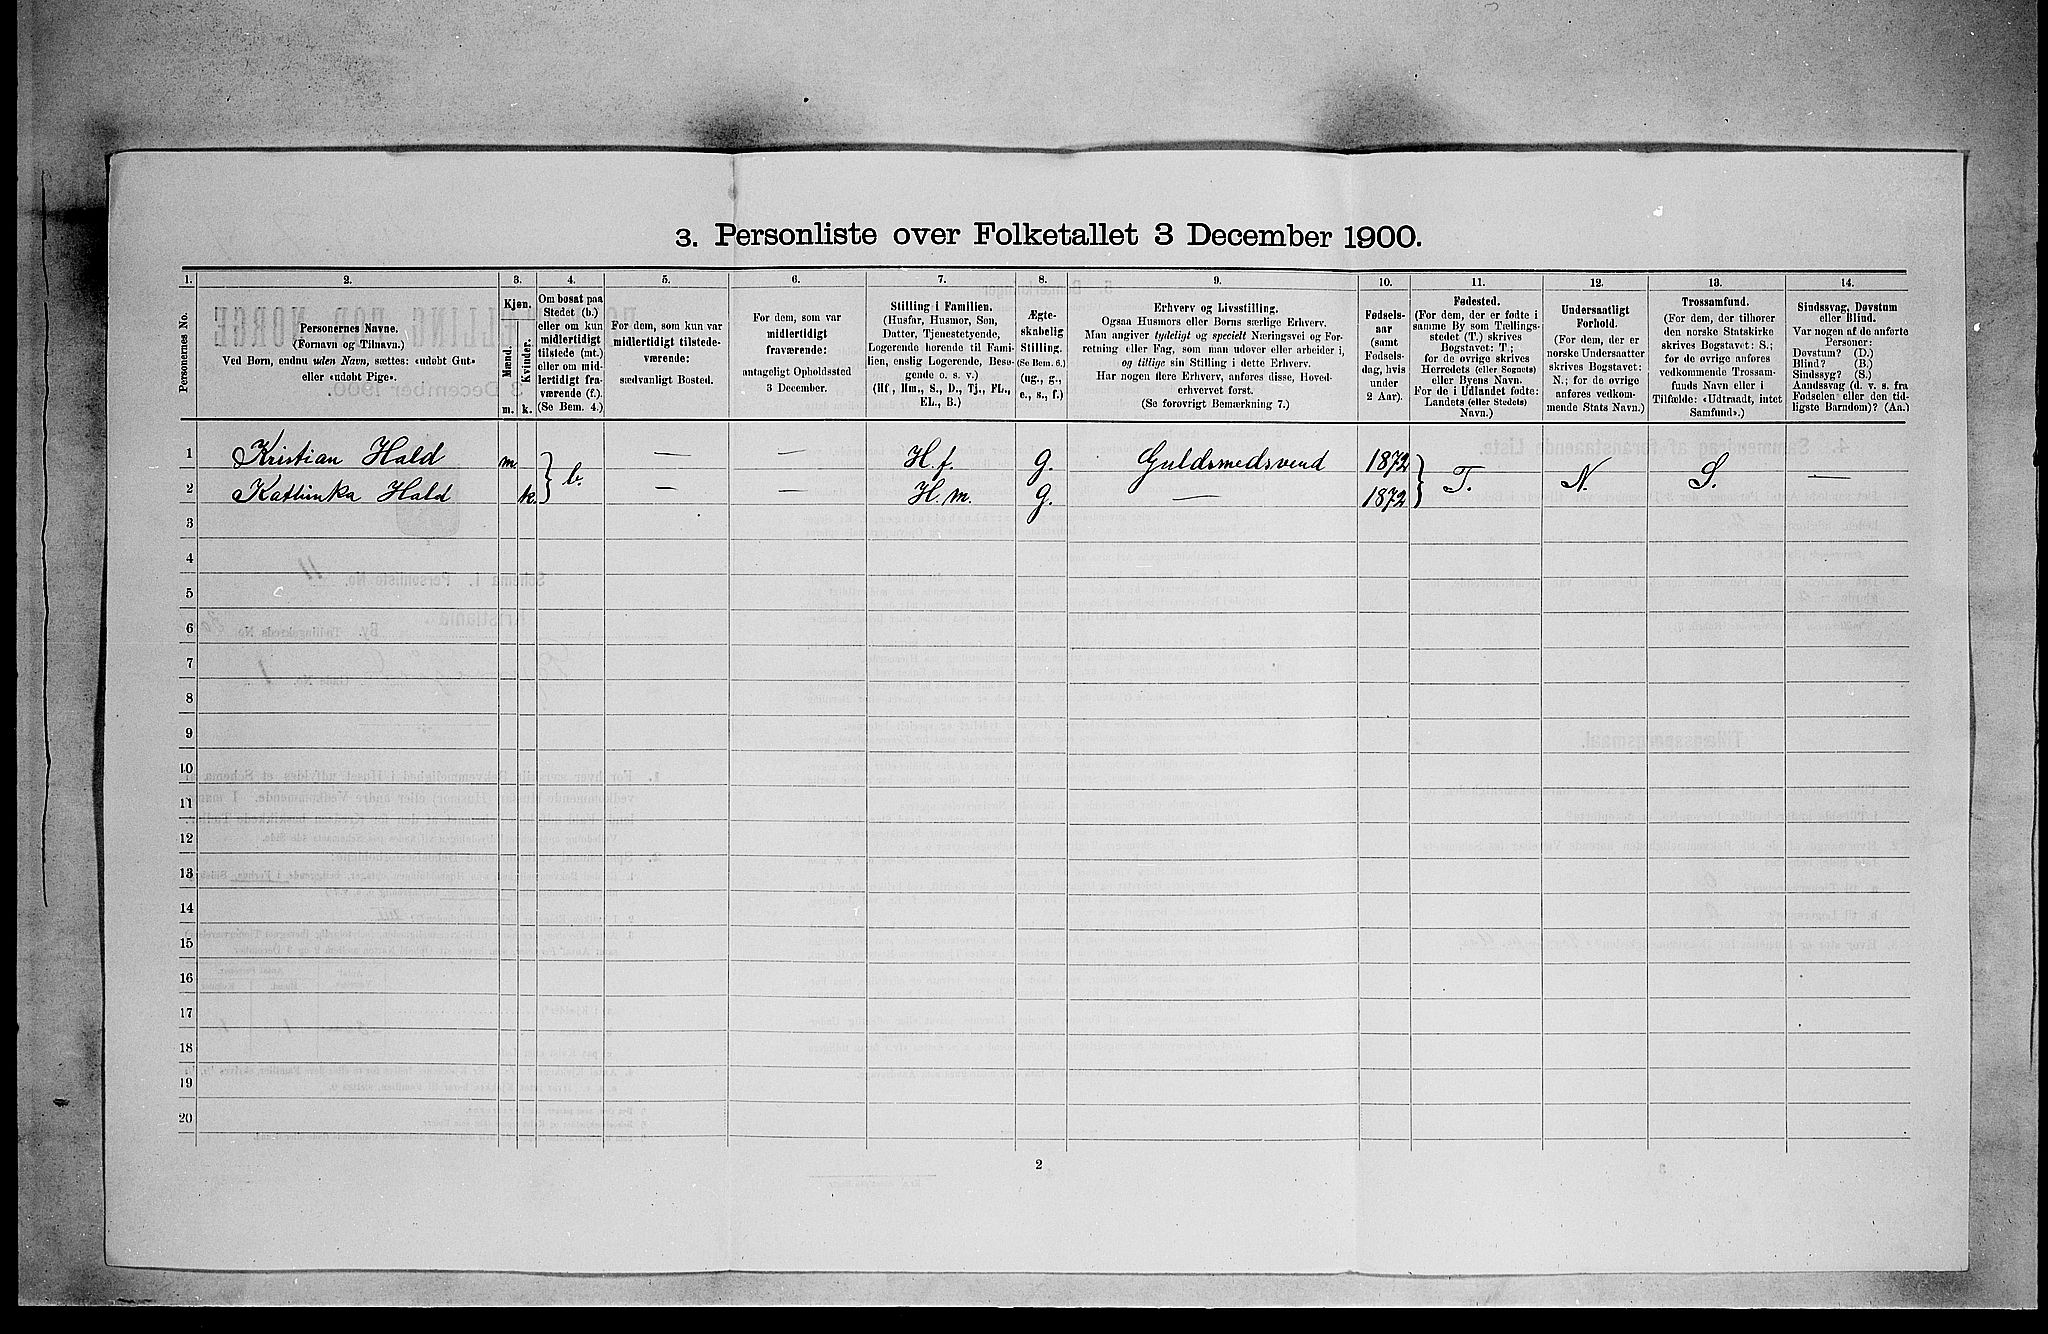 3. Personliste over Folketallet 3 December 1900.
1. 2. 3. 4. 5. 6. 7. 8. 9. 10. 11. 12. 13. 14.
Personernes No.
Personernes Navne.
(Fornavn og Tilnavn.)
Ved Børn, endnu uden Navn, sættes: «udøbt Gut»
eller «udøbt Pige».
Kjøn.
Mænd.
Kvinder.
m. k.
Om bosat paa
Stedet (b.)
eller om kun
midlertidigt
tilstede (mt.)
eller om mid-
lertidigt fra-
værende (f.).
(Se Bem. 4.)
For dem, som kun var
midlertidigt tilstede-
værende:
sædvanligt Bosted.
For dem, som var
midlertidigt
fraværende:
antageligt Opholdssted
3 December.
Stilling i Familien.
(Husfar, Husmor, Søn,
Datter, Tjenestetyende,
Logerende hørende til Fami-
lien, enslig Logerende, Besø-
gende o. s. v.)
(Hf, Hm., S., D., Tj., FL.,
EL., B.)
Ægte-
skabelig
Stilling.
(Se Bem. 6.)
(ug., g.,
e., s., f.)
Erhverv og Livsstilling.
Ogsaa Husmors eller Børns særlige Erhverv.
Man angiver tydeligt og specielt Næringsvei og For-
retning eller Fag, som man udøver eller arbeider i,
og tillige sin Stilling i dette Erhverv.
Har nogen flere Erhverv, anføres disse, Hoved-
erhvervet først.
(Se forøvrigt Bemærkning 7.)
Fødsels-
aar
(samt
Fødsels-
dag, hvis
under
2 Aar).
Fødested.
(For dem, der er fødte i
samme By som Tællings-
stedet (T.) skrives
Bogstavet: T.;
for de øvrige skrives
Herredets (eller Sognets)
eller Byens Navn.
For de i Udlandet fødte:
Landets (eller Stedets)
Navn.)
Undersaatligt
Forhold.
(For dem, der er
norske Undersaatter
skrives Bogstavet:
N.; for de øvrige
anføres vedkom-
mende Stats Navn.)
Trossamfund.
(For dem, der tilhører
den norske Statskirke
skrives Bogstavet: S.;
for de øvrige anføres
vedkommende Trossam-
funds Navn eller i
Tilfælde: «Udtraadt, intet
Samfund».)
Sindssvag, Døvstum
eller Blind.
Var nogen af de anførte
Personer:
Døvstum? (D.)
Blind? (B.)
Sindssyg? (S.)
Aandssvag (d. v. s. fra
Fødselen eller den tid-
ligste Barndom)? (Aa.)
1 Kristian Hald m. b. — — H. f. g. Guldsmedsvend 1872 T. N. S. —
2 Kathinka Hald k. — — H. m. g. — 1872
3
4
5
6
7
8
9
10
11
12
13
14
15
16
17
18
19
20
2